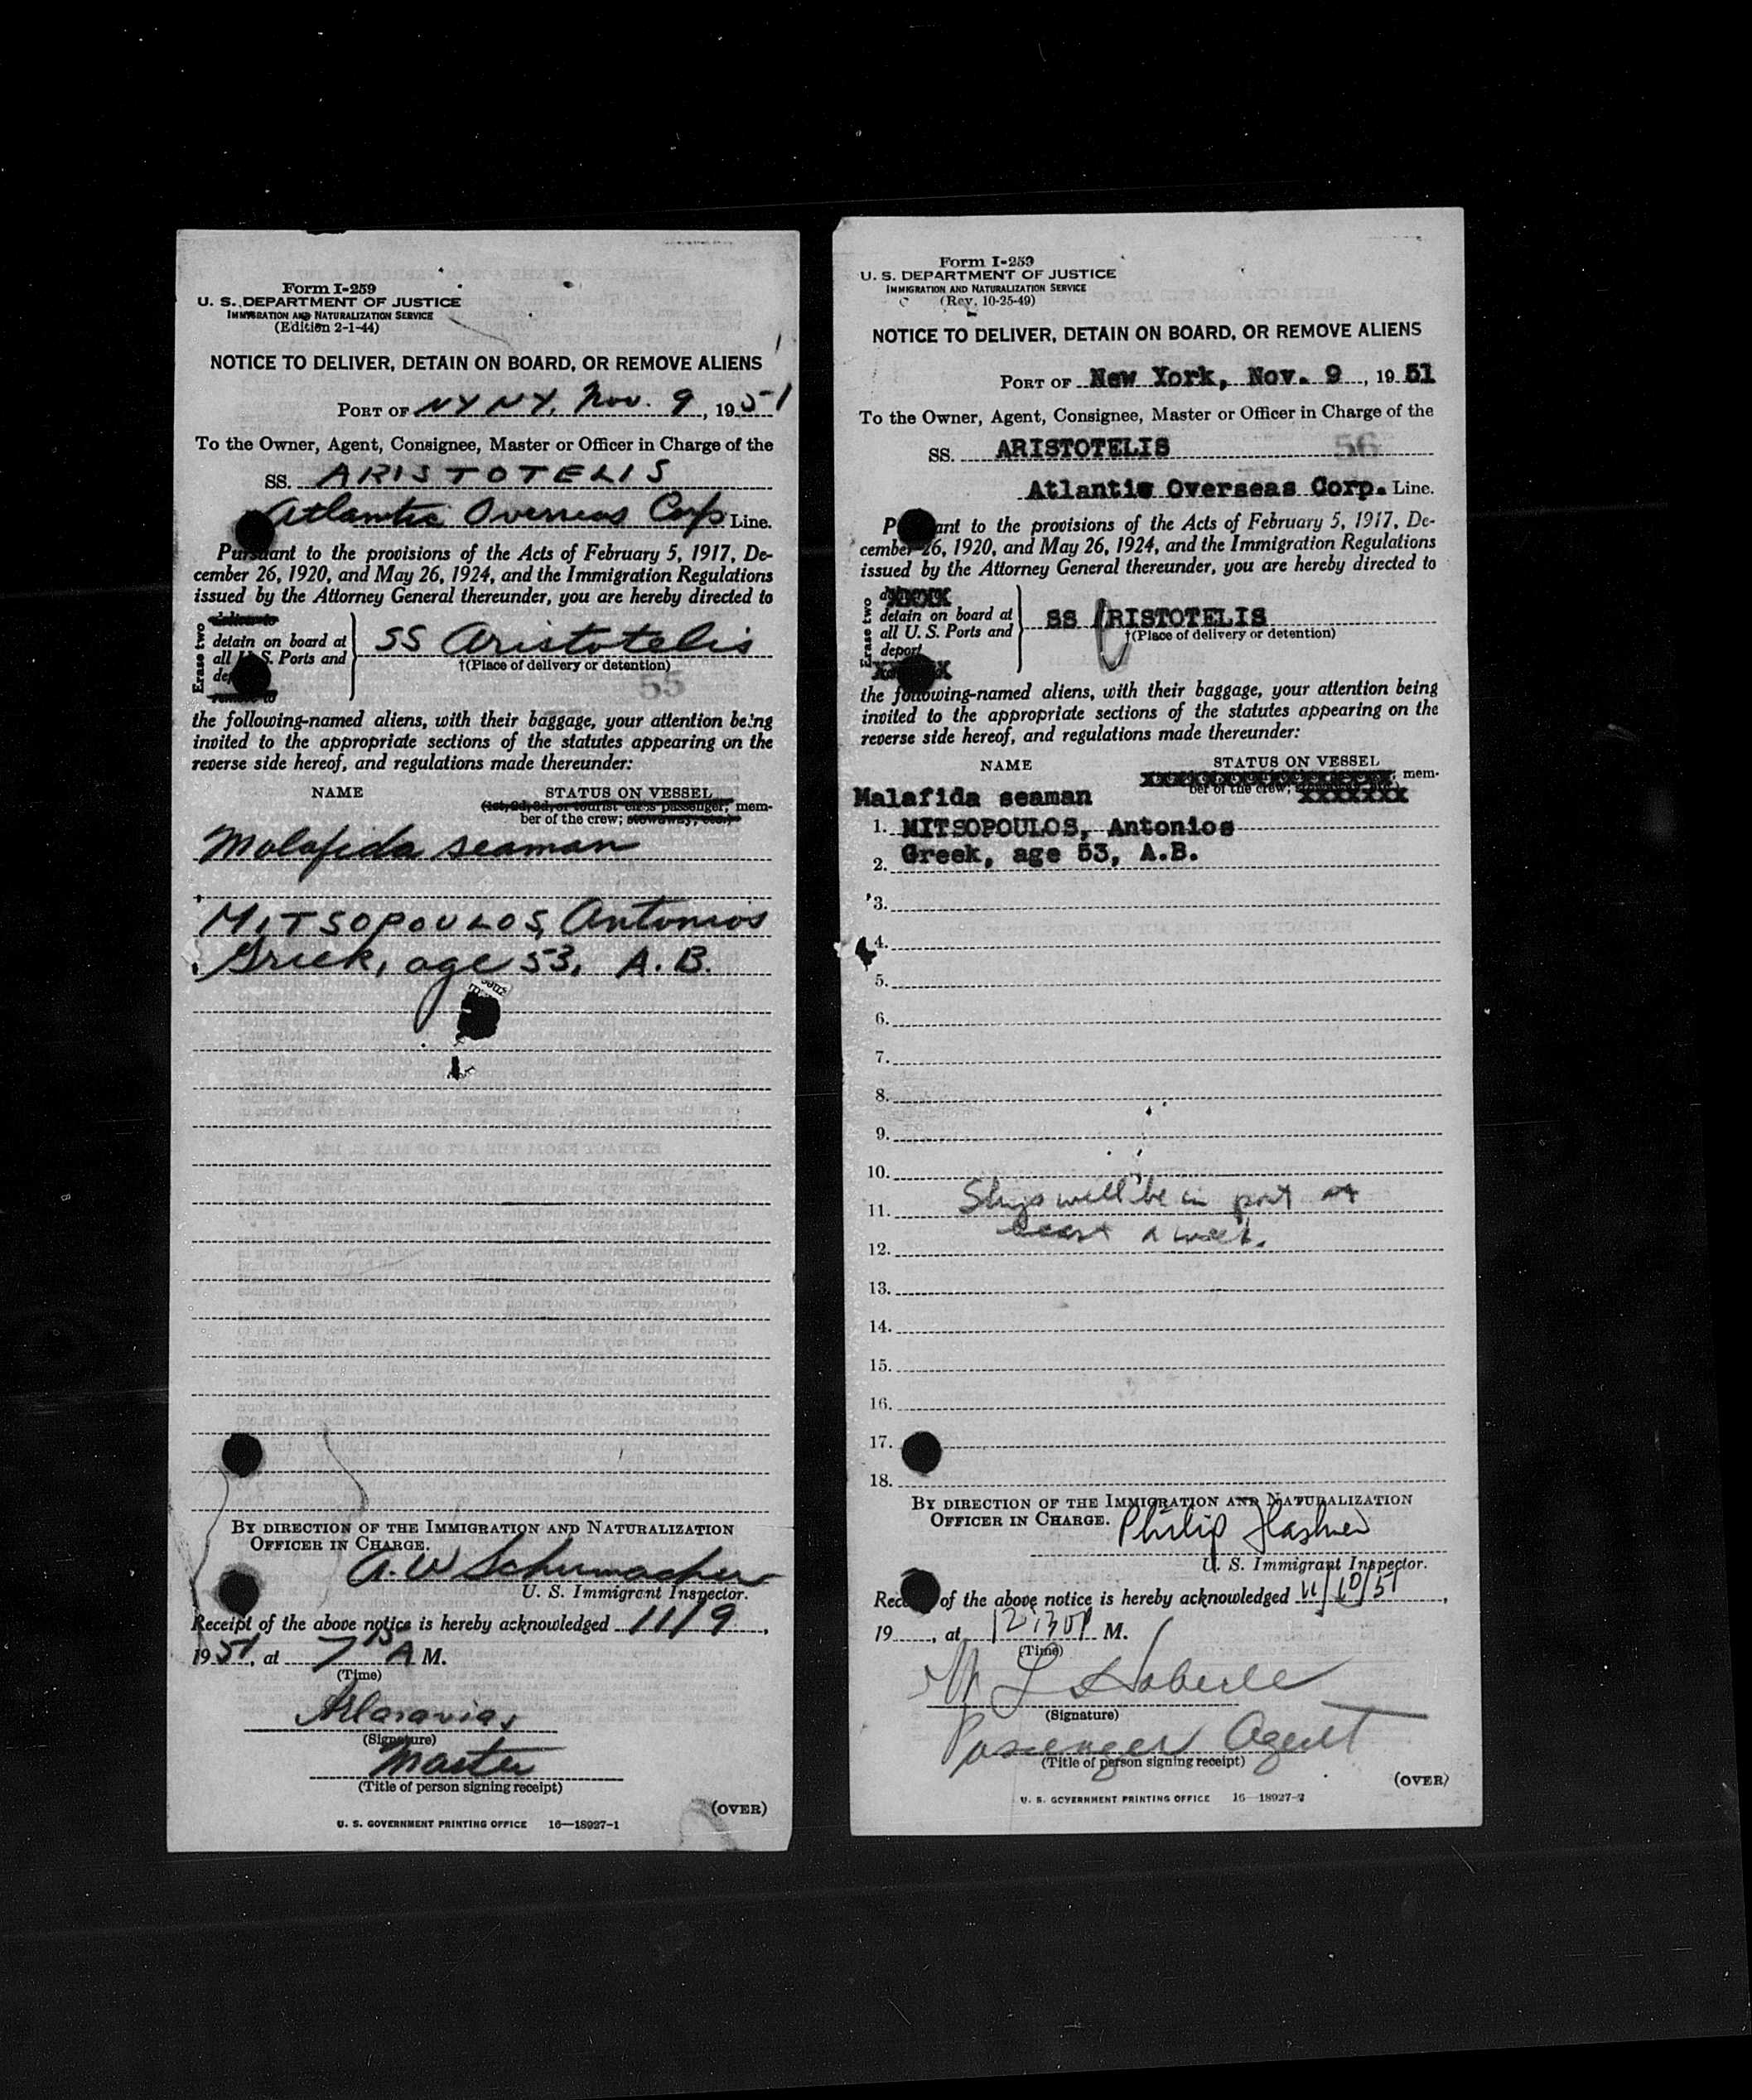 Form I-259
U. S. DEPARTMENT OF JUSTICE
IMMIGRATION AND NATURALIZATION SERVICE
(Edition 2-1-44)
NOTICE TO DELIVER, DETAIN ON BOARD, OR REMOVE ALIENS
PORT OF NY NY. Nov. 9, 1951
To the Owner, Agent, Consignee, Master or Officer in Charge of the
SS. ARISTOTELIS
Atlantic Overseas Corp Line.
Pursuant to the provisions of the Acts of February 5, 1917, De-
cember 26, 1920, and May 26, 1924, and the Immigration Regulations
issued by the Attorney General thereunder, you are hereby directed to
Erase two
detain on board at
all U. S. Ports and
SS Aristotelis
†(Place of delivery or detention)
remove to
55
the following-named aliens, with their baggage, your attention being
invited to the appropriate sections of the statutes appearing on the
reverse side hereof, and regulations made thereunder:
NAME STATUS ON VESSEL
(1st, 2d, 3d, or tourist class passenger; mem-
ber of the crew; stowaway, etc.)
Malafida seaman
MITSOPOULOS, Antonios
Greek, age 53, A.B.
BY DIRECTION OF THE IMMIGRATION AND NATURALIZATION
OFFICER IN CHARGE.
A. W Schumacher
U. S. Immigrant Inspector.
Receipt of the above notice is hereby acknowledged 11/9,
1951, at 7 15 A M.
(Time)
(Signature)
Master
(Title of person signing receipt)
(OVER)
U. S. GOVERNMENT PRINTING OFFICE 16—18927-1
Form I-259
U. S. DEPARTMENT OF JUSTICE
IMMIGRATION AND NATURALIZATION SERVICE
(Rev. 10-25-49)
NOTICE TO DELIVER, DETAIN ON BOARD, OR REMOVE ALIENS
PORT OF New York, Nov. 9, 1951
To the Owner, Agent, Consignee, Master or Officer in Charge of the
SS. ARISTOTELIS 56
Atlantic Overseas Corp. Line.
P ant to the provisions of the Acts of February 5, 1917, De-
cember 26, 1920, and May 26, 1924, and the Immigration Regulations
issued by the Attorney General thereunder, you are hereby directed to
Erase two
detain on board at
all U. S. Ports and
deport
SS ARISTOTELIS
†(Place of delivery or detention)
the following-named aliens, with their baggage, your attention being
invited to the appropriate sections of the statutes appearing on the
reverse side hereof, and regulations made thereunder:
NAME STATUS ON VESSEL
mem-
ber of the crew;
Malafida seaman
1. MITSOPOULOS, Antonios
2. Greek, age 53, A.B.
3.
4.
5.
6.
7.
8.
9.
10.
11. Ships will be in port at
12. least a week.
13.
14.
15.
16.
17.
18.
BY DIRECTION OF THE IMMIGRATION AND NATURALIZATION
OFFICER IN CHARGE.
Philip
U. S. Immigrant Inspector.
Rece of the above notice is hereby acknowledged 11/10/51,
19, at 12:30P M.
(Time)
(Signature)
Passenger Agent
(Title of person signing receipt)
(OVER)
U. S. GOVERNMENT PRINTING OFFICE 16—18927-2